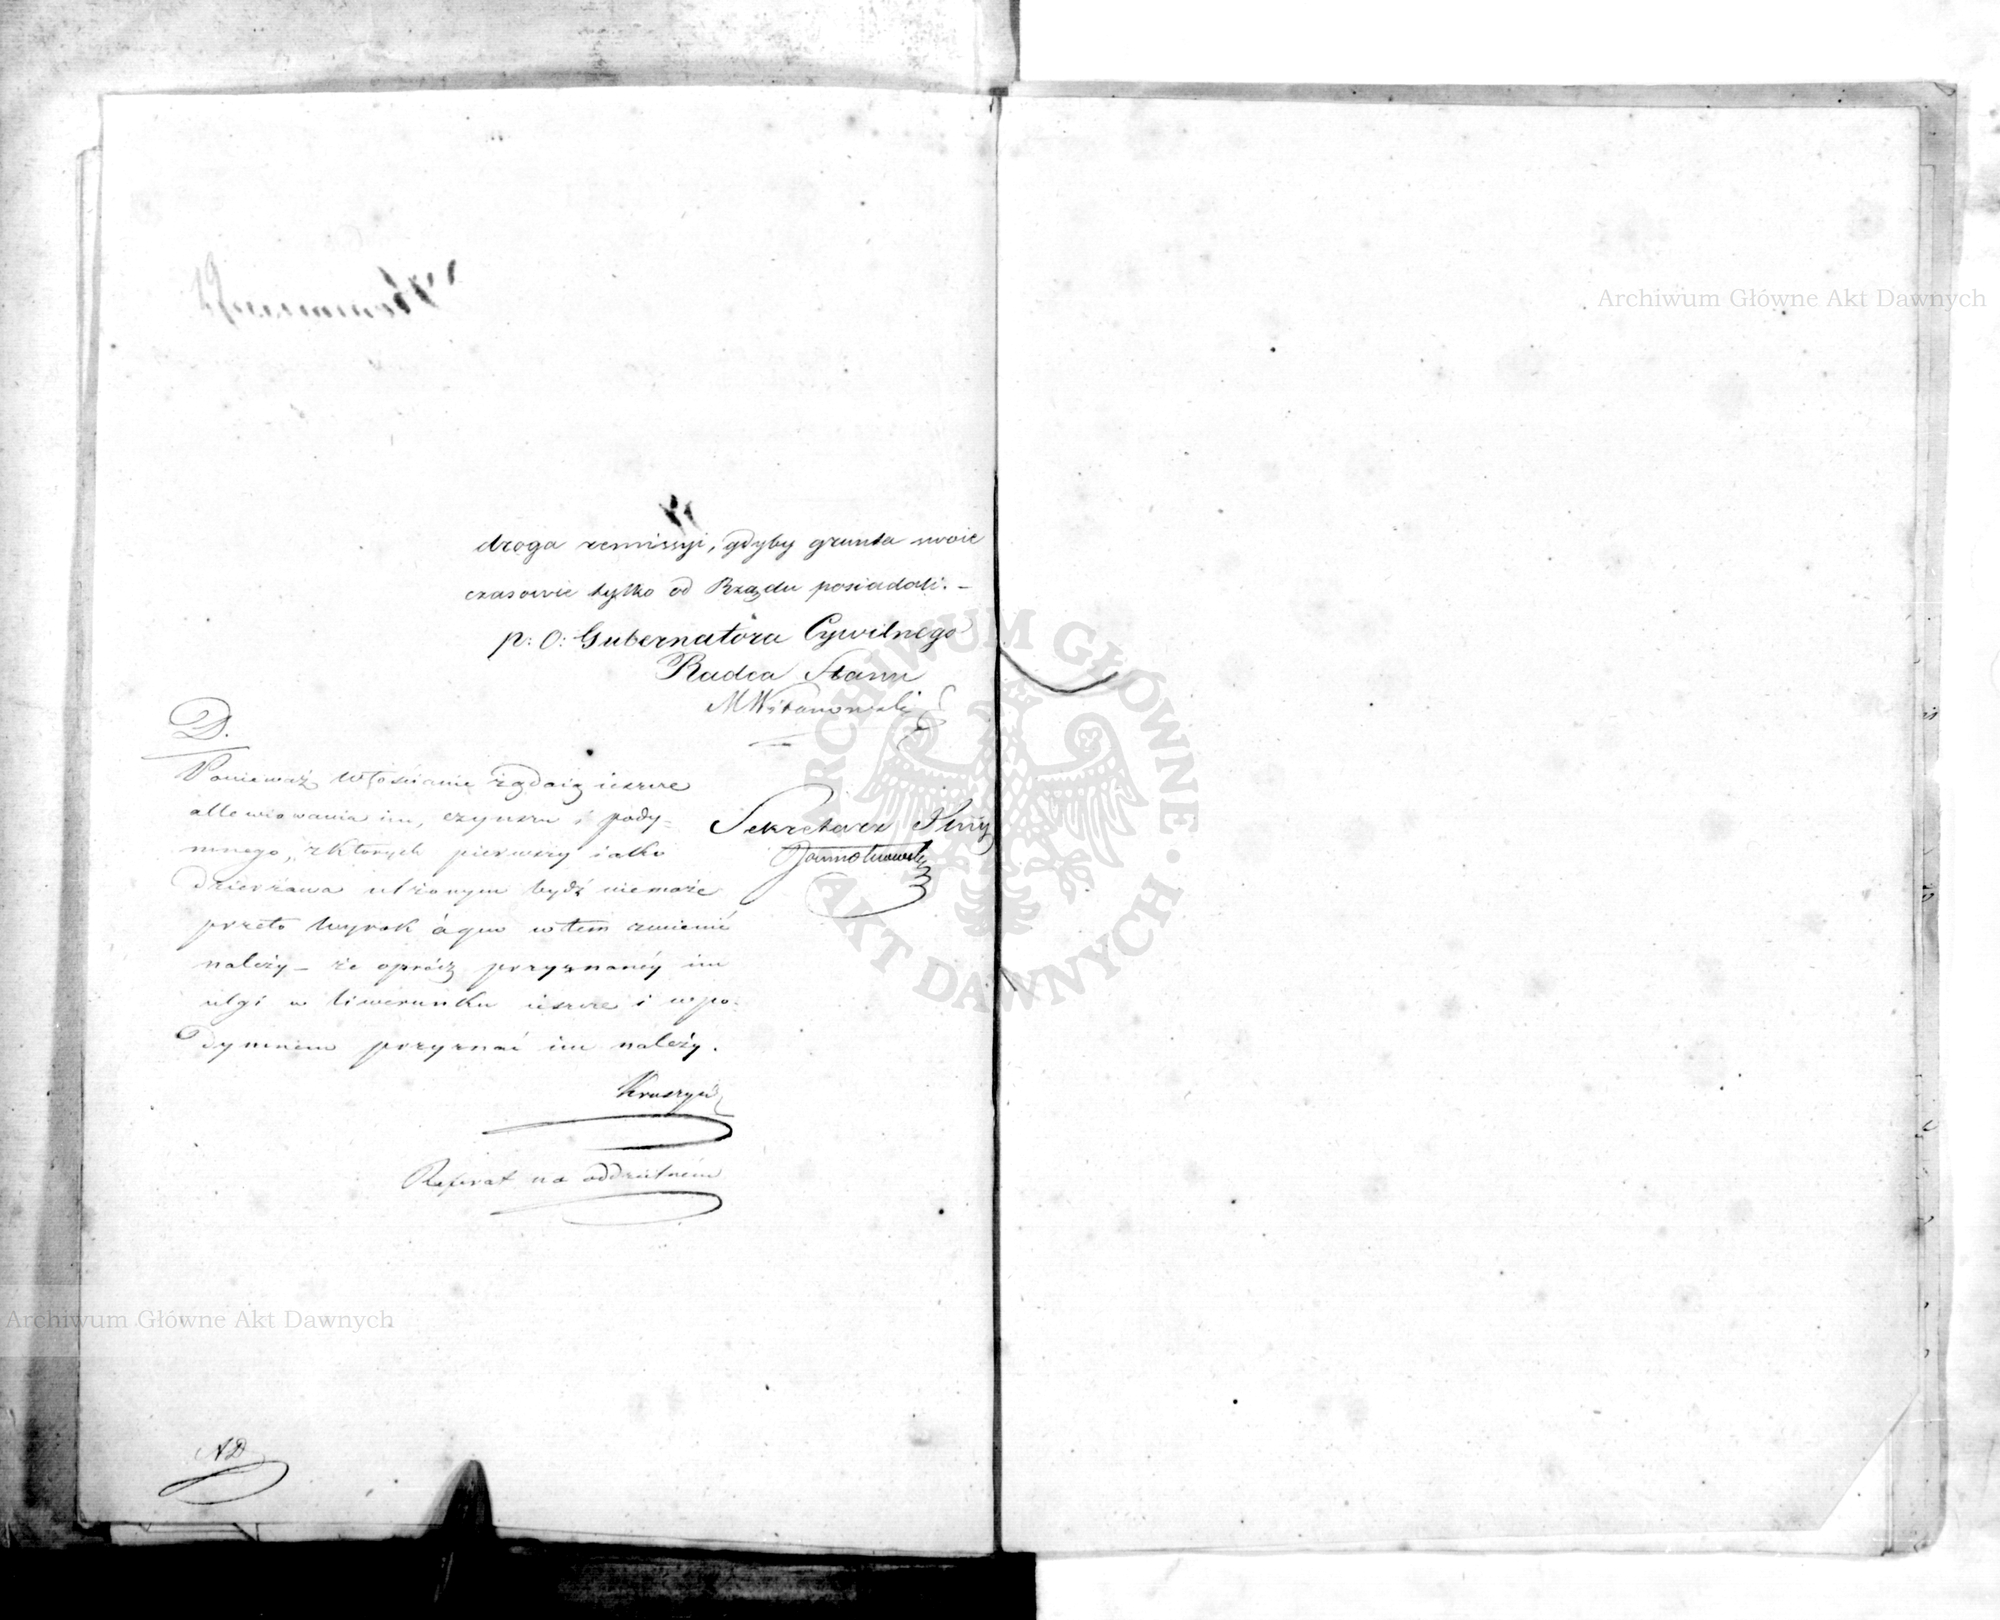 droga remissyi, gdyby grunta swoie
czasowie tylko od Rządu posiadali. –
p: o: Gubernatora Cywilnego
Radca Stanu
D.
Ponieważ Włościanie żądaią ieszcze
allewiowania im, czynszu i pody=
mnego, z których pierwszy iako
dzierżawa ulżonym bydź niemoże
przeto wyrok à quo w tem zmienić
należy – że oprócz przyznanéy im
ulgi w liwerunku ieszcze i w po-
dymnem przyznać im należy.
Sekretarz
Referat na oddzielnem
AD
Archiwum Główne Akt Dawnych
Archiwum Główne Akt Dawnych
ARCHIWUM GŁÓWNE
AKT DAWNYCH